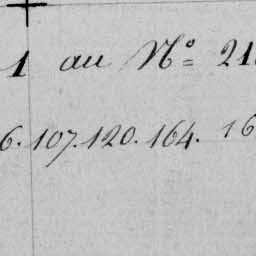 1 au Nº 21
6. 107. 120. 164. 16